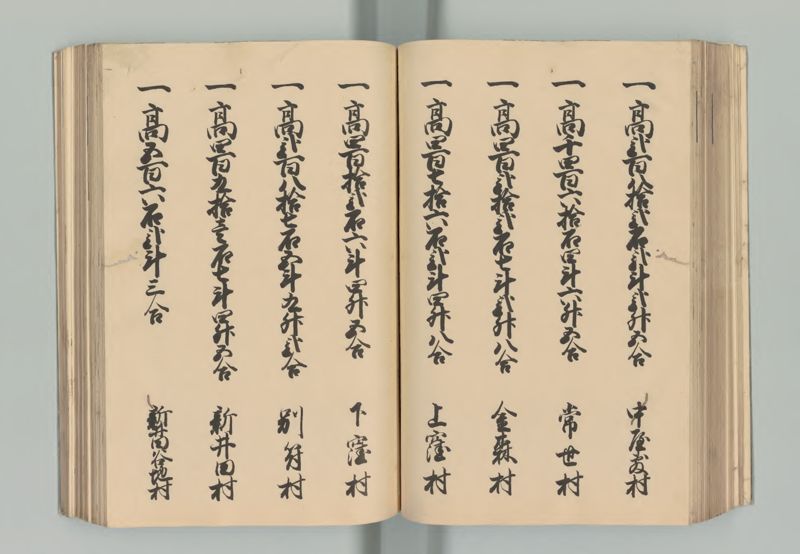 一高弐百八拾弐石弐斗弐升五合 中屋敷村
一高千四百六拾石四斗六升五合 常世村
一高四百弐拾弐石七斗弐升八合 金森村
一高四百七拾六石弐斗四升八合 上窪村
一高四百拾弐石六斗四升五合 下窪村
一高弐百八拾七石五斗九升弐合 別府村
一高四百九拾壱石七斗四升五合 新井田村
一高五百六石弐斗三合 新井田谷地村